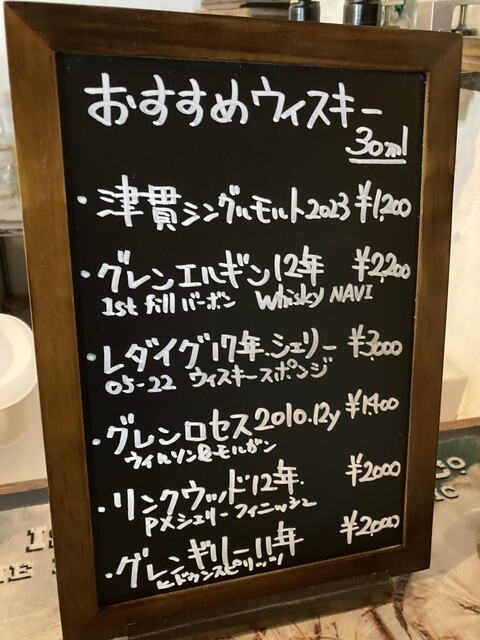 おすすめウィスキー
30ml
・津貫シングルモルト2023 ¥1,200
・グレンエルギン12年 ¥2,200
1st fill バーボン Whisky NAVI
・レダイグ17年.シェリー ¥3,000
05-22 ウィスキースポンジ
・グレンロセス2010.12y ¥1,400
ウィルソン&モルガン
・リンクウッド12年. ¥2000
PXシェリーフィニッシュ
・グレンギリー11年 ¥2,000
ヒドゥンスピリッツ